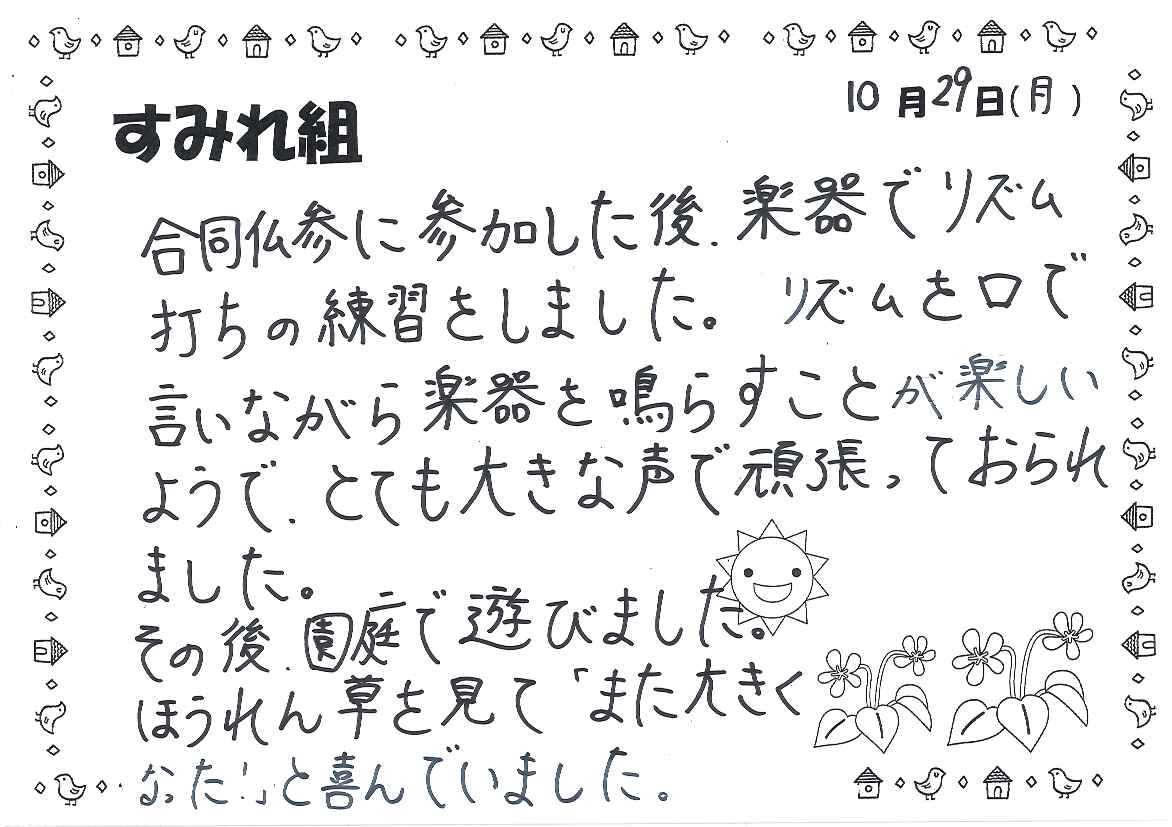 10月29日(月)
すみれ組
合同仏参に参加した後、楽器でリズム
打ちの練習をしました。リズムを口で
言いながら楽器を鳴らすことが楽しい
ようで、とても大きな声で頑張っておられ
ました。
その後、園庭で遊びました。
ほうれん草を見て「また大きく
なった!」と喜んでいました。